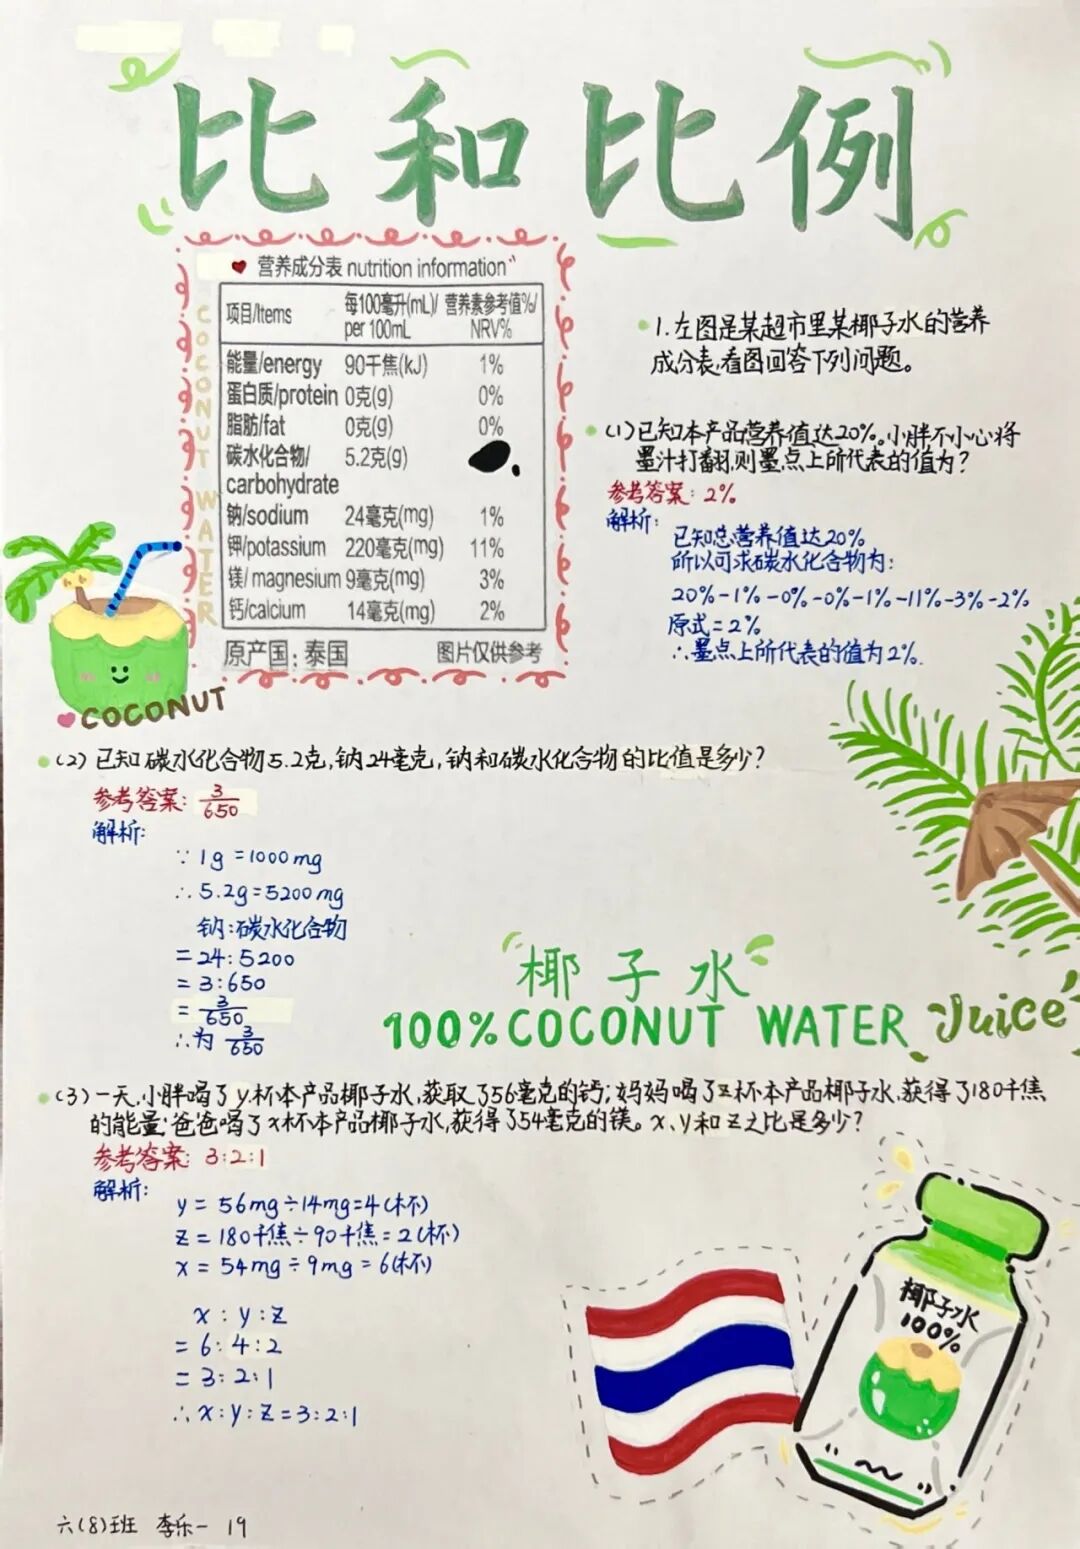 比和比例
营养成分表 nutrition information"
项目/Items 每100毫升(mL)/ per 100mL 营养素参考值%/ NRV%
能量/energy 90千焦(kJ) 1%
蛋白质/protein 0克(g) 0%
脂肪/fat 0克(g) 0%
碳水化合物/ 5.2克(g)
carbohydrate
钠/sodium 24毫克(mg) 1%
钾/potassium 220毫克(mg) 11%
镁/magnesium 9毫克(mg) 3%
钙/calcium 14毫克(mg) 2%
原产国:泰国 图片仅供参考
COCONUT WATER
COCONUT
1.左图是某超市里某椰子水的营养
成分表,看图回答下列问题。
(1)已知本产品营养值达20%。小胖不小心将
墨汁打翻,则墨点上所代表的值为?
参考答案:2%
解析:
已知总营养值达20%
所以可求碳水化合物为:
20%-1%-0%-0%-1%-11%-3%-2%
原式=2%
∴墨点上所代表的值为2%.
(2)已知碳水化合物5.2克,钠24毫克,钠和碳水化合物的比值是多少?
参考答案:3/650
解析:
∵1g=1000mg
∴5.2g=5200mg
钠:碳水化合物
=24:5200
=3:650
=3/650
∴为3/650
椰子水
100%COCONUT WATER Juice
(3)一天,小胖喝了y杯本产品椰子水,获取了56毫克的钙;妈妈喝了z杯本产品椰子水,获得了180千焦
的能量;爸爸喝了x杯本产品椰子水,获得了54毫克的镁。x、y和z之比是多少?
参考答案:3:2:1
解析:
y=56mg÷14mg=4(杯)
z=180千焦÷90千焦=2(杯)
x=54mg÷9mg=6(杯)
x:y:z
=6:4:2
=3:2:1
∴x:y:z=3:2:1
椰子水
100%
六(8)班 李乐一 19